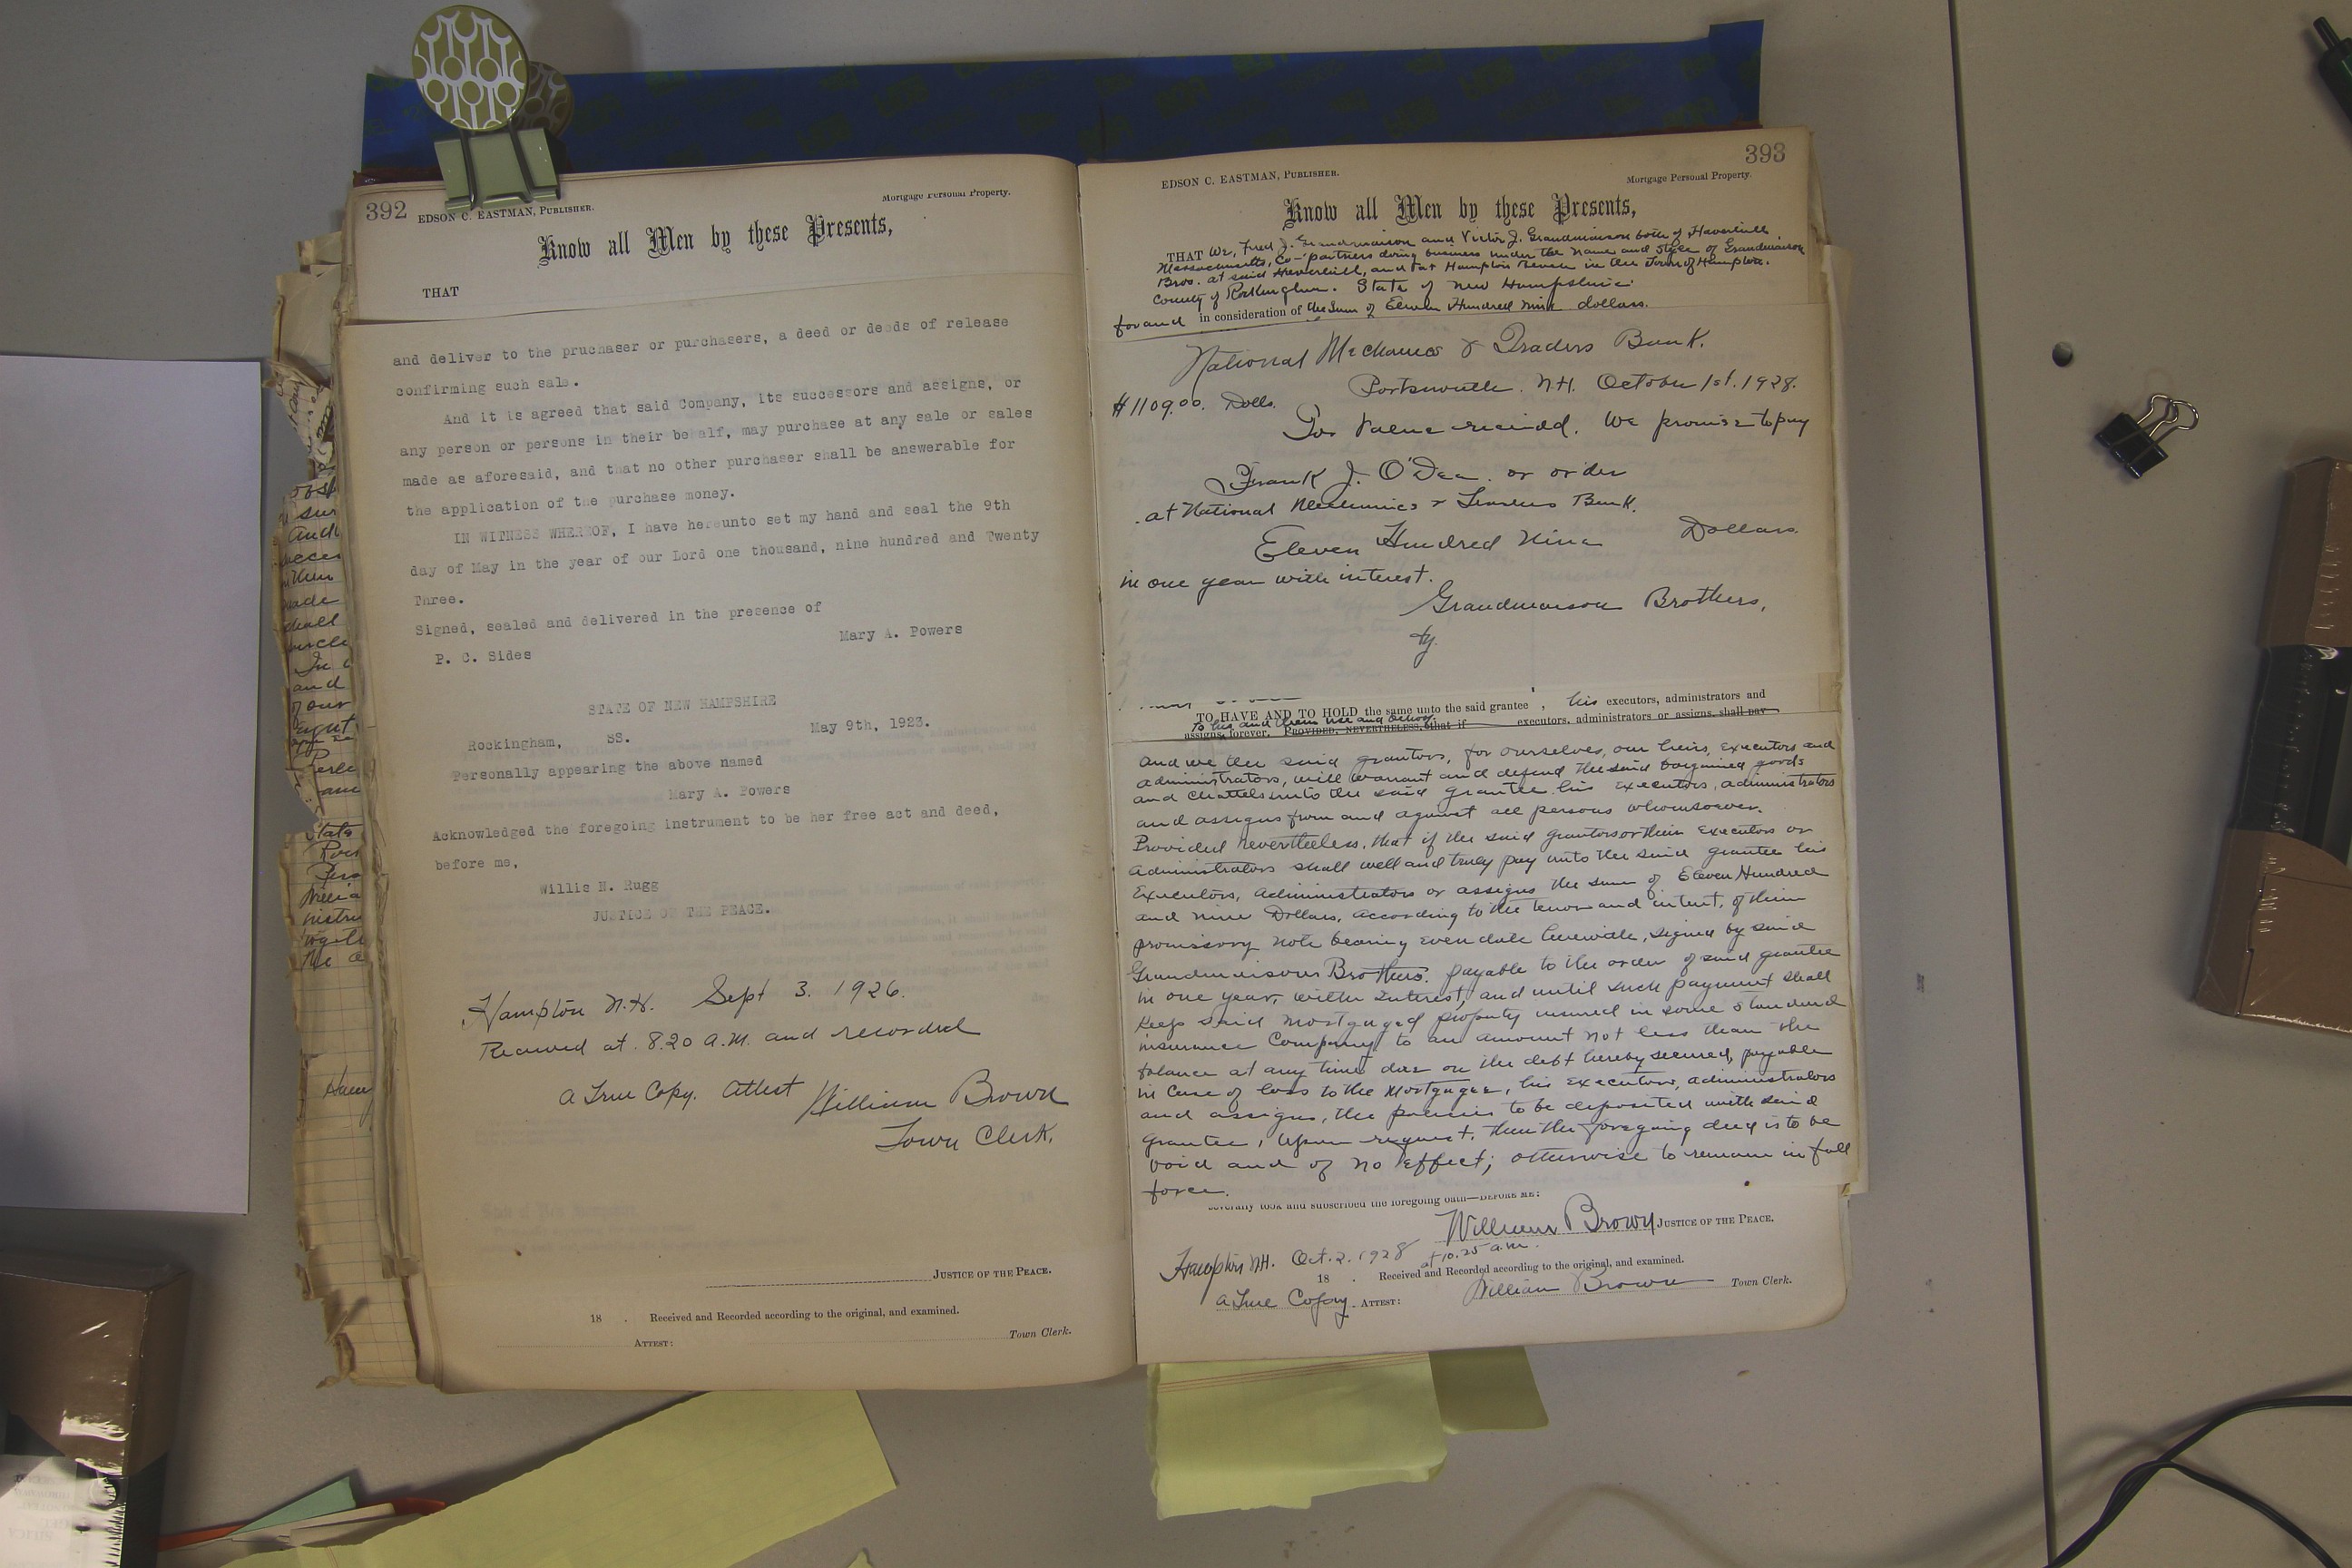 392
EDSON C. EASTMAN, PUBLISHER.
Mortgage Personal Property.
Know all Men by these Presents,
THAT
and deliver to the pruchaser or purchasers, a deed or deeds of release
confirming such sale.
And it is agreed that said Company, its successors and assigns, or
any person or persons in their behalf, may purchase at any sale or sales
made as aforesaid, and that no other purchaser shall be answerable for
the application of the purchase money.
IN WITNESS WHEREOF, I have hereunto set my hand and seal the 9th
day of May in the year of our Lord one thousand, nine hundred and Twenty
Three.
Signed, sealed and delivered in the presence of
Mary A. Powers
P. C. Sides
STATE OF NEW HAMPSHIRE
Rockingham, SS. May 9th, 1923.
Personally appearing the above named
Mary A. Powers
Acknowledged the foregoing instrument to be her free act and deed,
before me,
Willis N. Rugg
JUSTICE OF THE PEACE.
Hampton N.H. Sept 3. 1926.
Received at 8.20 A.M. and recorded
A True Copy. Attest William Brown
Town Clerk.
JUSTICE OF THE PEACE.
18 . Received and Recorded according to the original, and examined.
ATTEST: Town Clerk.
393
EDSON C. EASTMAN, PUBLISHER.
Mortgage Personal Property.
Know all Men by these Presents,
THAT We, Fred J. Grandmaison and Victor J. Grandmaison both of Haverhill,
Massachusetts, Co-partners doing business under the name and style of Grandmaison
Bros. at said Haverhill, and at Hampton Beach in the Town of Hampton.
County of Rockingham. State of New Hampshire.
for and in consideration of the Sum of Eleven Hundred nine dollars.
National Mechanics & Traders Bank.
Portsmouth. N.H. October 1st. 1928.
$1109.00. Dolls.
For Value received. We promise to pay
Frank J. O'Dea. or order
at National Mechanics & Traders Bank.
Eleven Hundred Nine Dollars.
in one year with interest.
Grandmaison Brothers,
by.
TO HAVE AND TO HOLD the same unto the said grantee , his executors, administrators and
To his and their use and behoof.
assigns, forever. PROVIDED, NEVERTHELESS, that if executors, administrators or assigns, shall pay
And we the said grantors, for ourselves, our heirs, executors and
administrators, will warrant and defend the said bargained goods
and Chattels unto the said grantee his executors, administrators
and assigns from and against all persons whomsoever.
Provided Nevertheless, that if the said grantors or their executors or
administrators shall well and truly pay unto the said grantee his
Executors, administrators or assigns the sum of Eleven Hundred
and nine Dollars, according to the tenor and intent, of their
promissory note bearing even date herewith, signed by said
Grandmaison Brothers. payable to the order of said grantee
in one year, with interest, and until such payment shall
keep said mortgaged property insured in some standard
insurance Company, to an amount not less than the
balance at any time due on the debt hereby secured, payable
in case of loss to the Mortgagee, his executors, administrators
and assigns, the policies to be deposited with said
grantee, upon request, then the foregoing deed is to be
void and of no effect; otherwise to remain in full
force.
severally took and subscribed the foregoing oath—BEFORE ME:
William Brown JUSTICE OF THE PEACE.
Hampton N.H. Oct. 2. 1928 at 10.25 a.m.
18 . Received and Recorded according to the original, and examined.
A True Copy. ATTEST: William Brown Town Clerk.